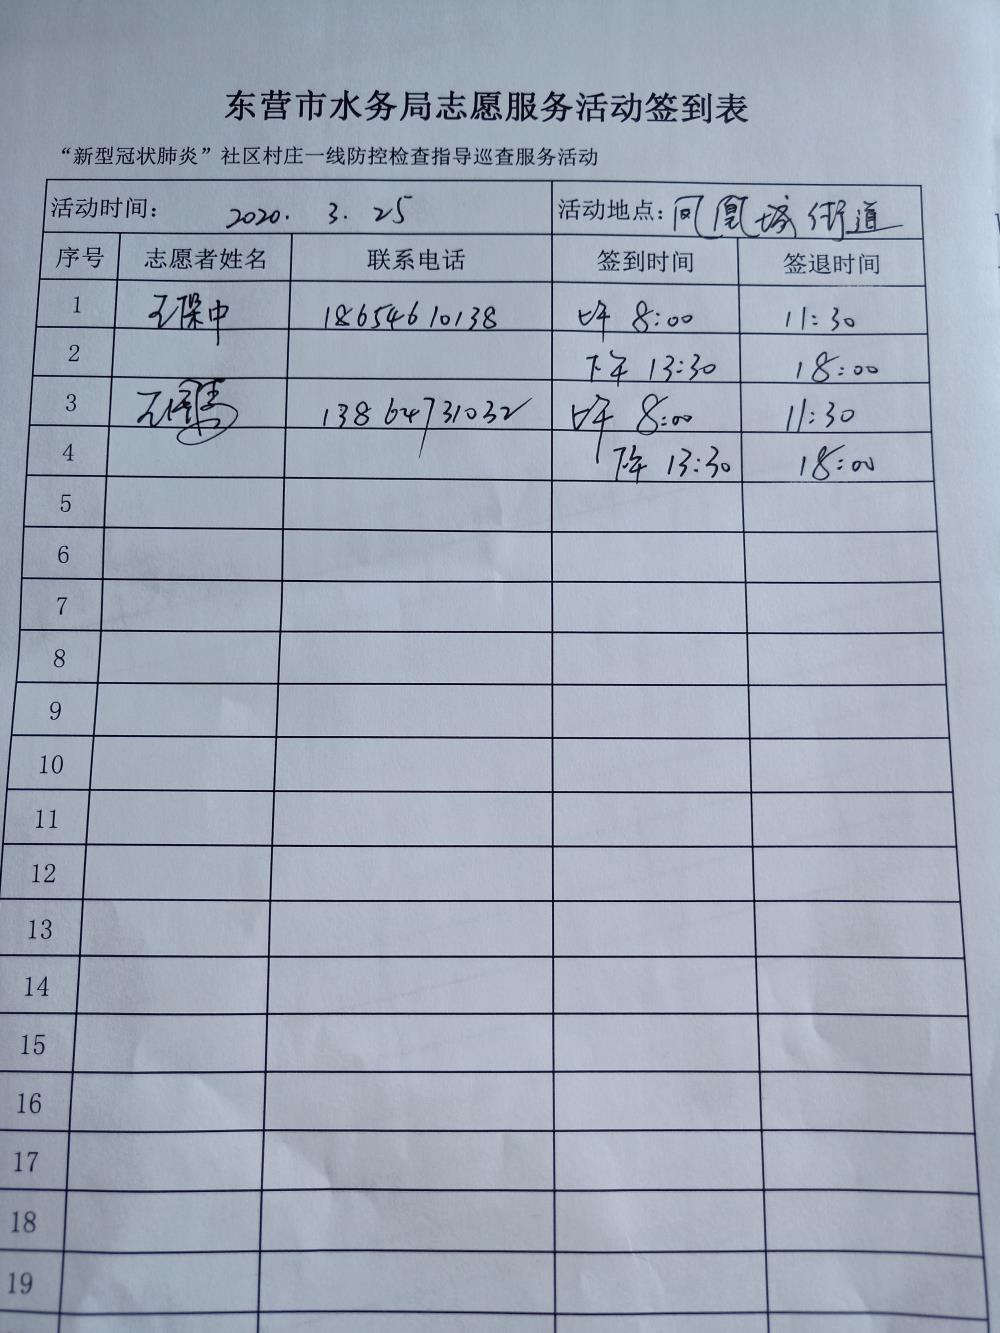 东营市水务局志愿服务活动签到表
“新型冠状肺炎”社区村庄一线防控检查指导巡查服务活动
活动时间： 2020. 3. 25 活动地点：凤凰城街道
序号 志愿者姓名 联系电话 签到时间 签退时间
1 王保中 18654610138 上午 8:00 11:30
2 下午 13:30 18:00
3 13864731032 上午 8:00 11:30
4 下午 13:30 18:00
5
6
7
8
9
10
11
12
13
14
15
16
17
18
19